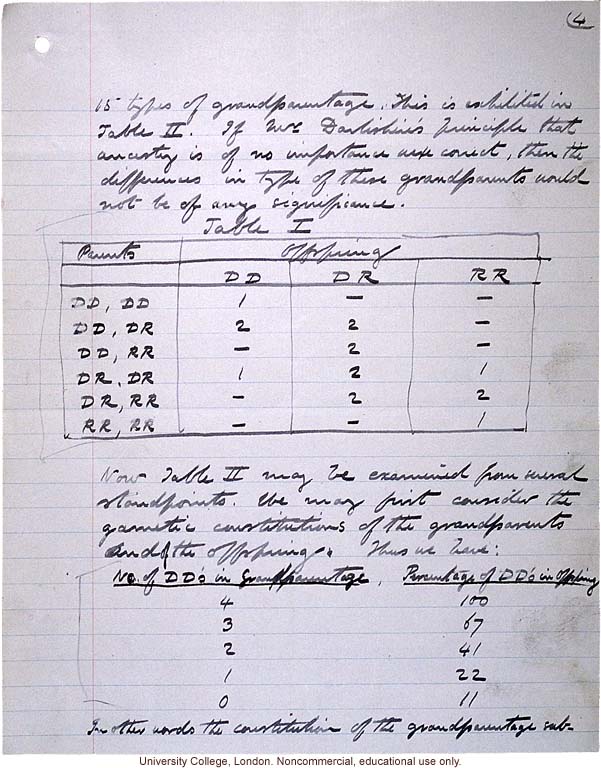 4
15 types of grandparentage. This is exhibited in
Table II. If Mr Darbishire's principle that
ancestry is of no importance were correct, then the
differences in type of these grandparents would
not be of any significance.
Table I
Parents Offspring
DD DR RR
DD, DD 1 — —
DD, DR 2 2 —
DD, RR — 2 —
DR, DR 1 2 1
DR, RR — 2 2
RR, RR — — 1
Now Table II may be examined from several
standpoints. We may first consider the
gametic constitutions of the grandparents
and of the offspring. Thus we have:
No. of DD's in Grandparentage, Percentage of DD's in Offspring
4 100
3 67
2 41
1 22
0 11
In other words the constitution of the grandparentage sub-
University College, London. Noncommercial, educational use only.